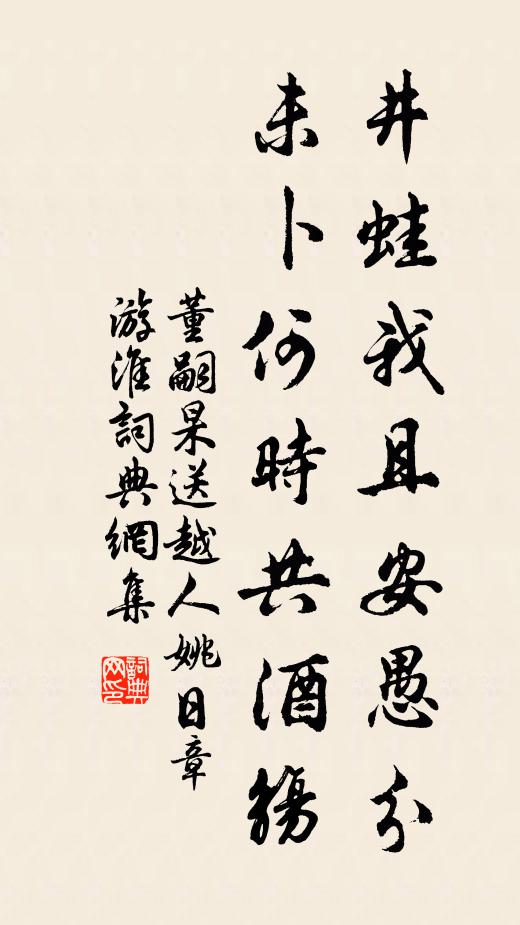 井蛙我且安愚分
未卜何時共酒觴
董嗣杲送越人姚日章
游淮詞典網集
詞典網印